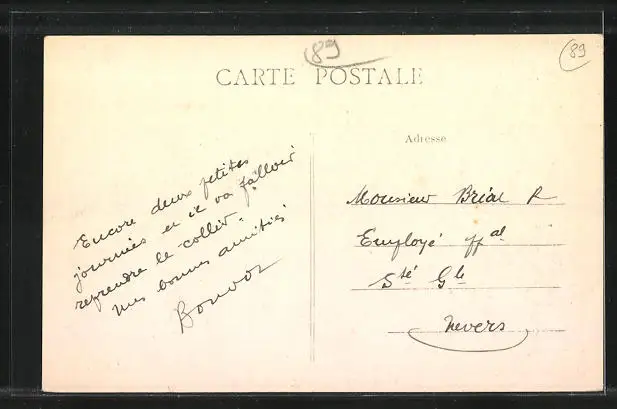 89
89
CARTE POSTALE
Adresse
Encore deux petites
journées et il va falloir
reprendre le collier.
Mes bonnes amitiés
Monsieur Bréal R
Employé ppal
Sté Gle
Nevers